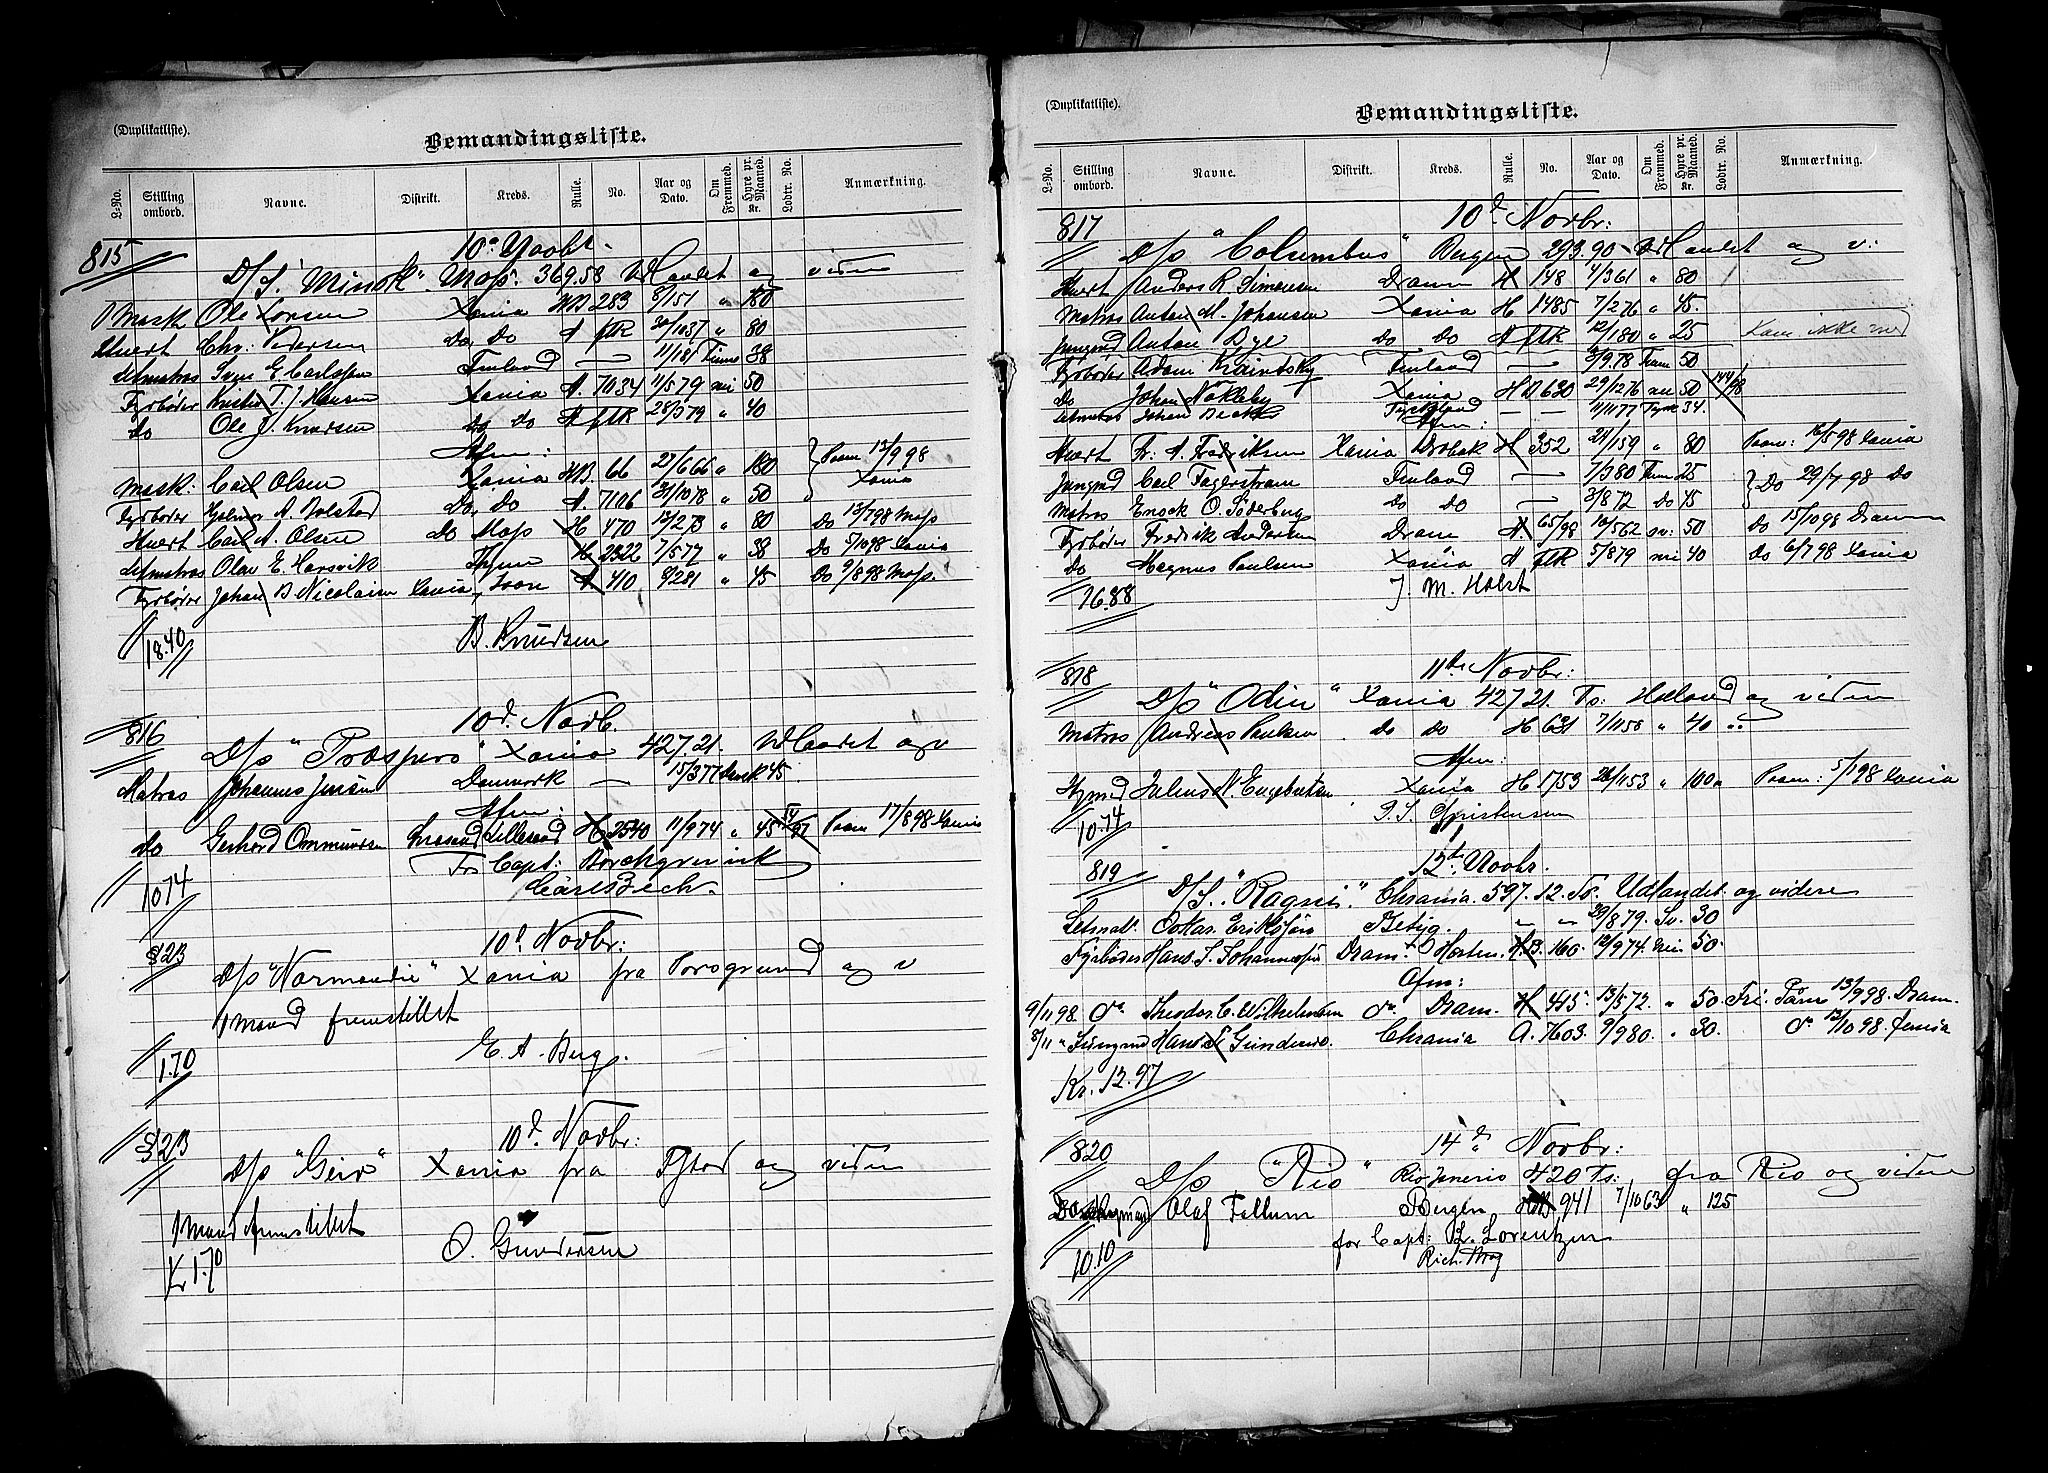 (Duplikatliste).
Bemandingsliste.
L-No. Stilling ombord. Navne. Distrikt. Kreds. Rulle. No. Aar og Dato. Om Fremmed. Hyre pr. Maaned. Kr. Lodtr. No. Anmærkning.
815 10d Novbr.
D/S. "Minsk" Moss. 369.58 Udlandet og videre
1 Mask Ole Larsen Xania HB 283 8/151 " 180
Hvert Chr. Pedersen do, do A ftR 30/1037 " 80
Letmatros E. Carlsson Finland — 11/181 Finne 38
Fyrbøder Kristian T. J. Hansen Xania A. 7034 11/579 nei 50
Do Ole J. Knudsen do do A ftR 28/379 " 40
Afm:
Mask: Carl Olsen Xania HB. 66 27/666 " 180 Paam 13/9 98 Xania
Fyrbøder Hjalmar A. Bolstad Do, Do A. 7106 31/1078 " 50
Hvert Carl A. Olsen do Moss H 470 13/273 " 80 Do 13/798 Moss
Letmatros Olav E. Harsvik H 2322 7/577 " 38 Do 5/1098 Xania
Fyrbøder Johan B Nicolaisen Xania, A 410 8/281 " 45 Do 9/898 Moss.
18.40 B. Knudsen
816 10d. Novb.
D/S "Prospero" Xania 427.21. Udlandet og v
Matros Johannes Jensen Danmark — 15/377 Dansk 45
Afm:
do Gerhard Ommundsen Lillesand H 2540 11/974 " 45 Paam 17/898 Xania
For Capt: Borchgrevink
Carl Bech.
1074
§2B 10d Novbr:
D/S "Normandie" Xania fra Porsgrund og v
1 mand fremstillet
1.70 E. A. Berg.
§2B 10d. Novbr:
D/S "Geir" Xania fra og videre
1 mand fremstillet
Kr 1.70 O. Gundersen
(Duplikatliste).
Bemandingsliste.
L-No. Stilling ombord. Navne. Distrikt. Kreds. Rulle. No. Aar og Dato. Om Fremmed. Hyre pr. Maaned. Kr. Lodtr. No. Anmærkning.
817 10d Novbr:
D/S "Columbus" Bergen 293.90 Udlandet og v:
Hvert Anders R. Simensen Dram H 148 4/361 " 80
Matros Anton M. Johansen Xania H 1485 7/276 " 45.
Jungmd Anton Bye do do A ftR 12/180 " 25 Kom ikke med
Fyrbøder Adam Finland — 3/978 50
do Johan Nökleby Xania HB 630 29/1276 nei 50 44/98
Letmatros Johan Beck Tyskland — — 11/1177 Tysk 34.
Afm:
Hvert Fr. A. Fredriksen Xania Drøbak H 352 21/159 " 80 Paam: 16/598 Xania
Jungmd Carl Fagerstrøm Finland — 7/380 Finne 25 Do 29/798 Do
Matros Enock O. Söderberg do do — 3/872 do 45
Fyrbøder Fredrik Andersen Dram A. 65/98 10/562 sv: 50 do 15/1098 Drammen
Do Magnus Paulsen Xania A ftR 5/879 nei 40 Do 6/798 Xania
16.88 J. M. Holst
818 11te Novbr:
D/S "Odin" Xania 427.21. Ts: Holland og videre
Matros Andreas Paulsen do do H 631 7/1158 " 40
Afm:
Julius N. Engebretsen Xania H 1753 26/1153 " 100 Paam: 5/198 Xania
10.74 P. S. Christensen
819 12te Novbr.
D/S. "Ragni." Chrania. 597.12. Ts. Udlandet og videre
Letmatr. Oskar Eriksson " " 29/879. Sv. 30
Fyrbøder Hans J. Johannessen Dram. Horten. H.B. 160. 12/974. nei. 50.
Afm:
9/1198. do Theodor C. Wilhelmsen do. Dram. H 495. 13/572. " 50. Fri. Paam 13/998. Dram.
8/11 " Jungmd Hans Gundersen. Chrania A. 7603. 9/980. " 30. do 13/1098.
Kr. 12.97
820 14d Novbr:
D/S "Rio" Rio Janeiro 420 Ts: fra Rio og videre
Olaf Fellum Bergen HB 941 7/1063 " 125
for Capt: L. Lorentzen
10.10 Rich. Krag